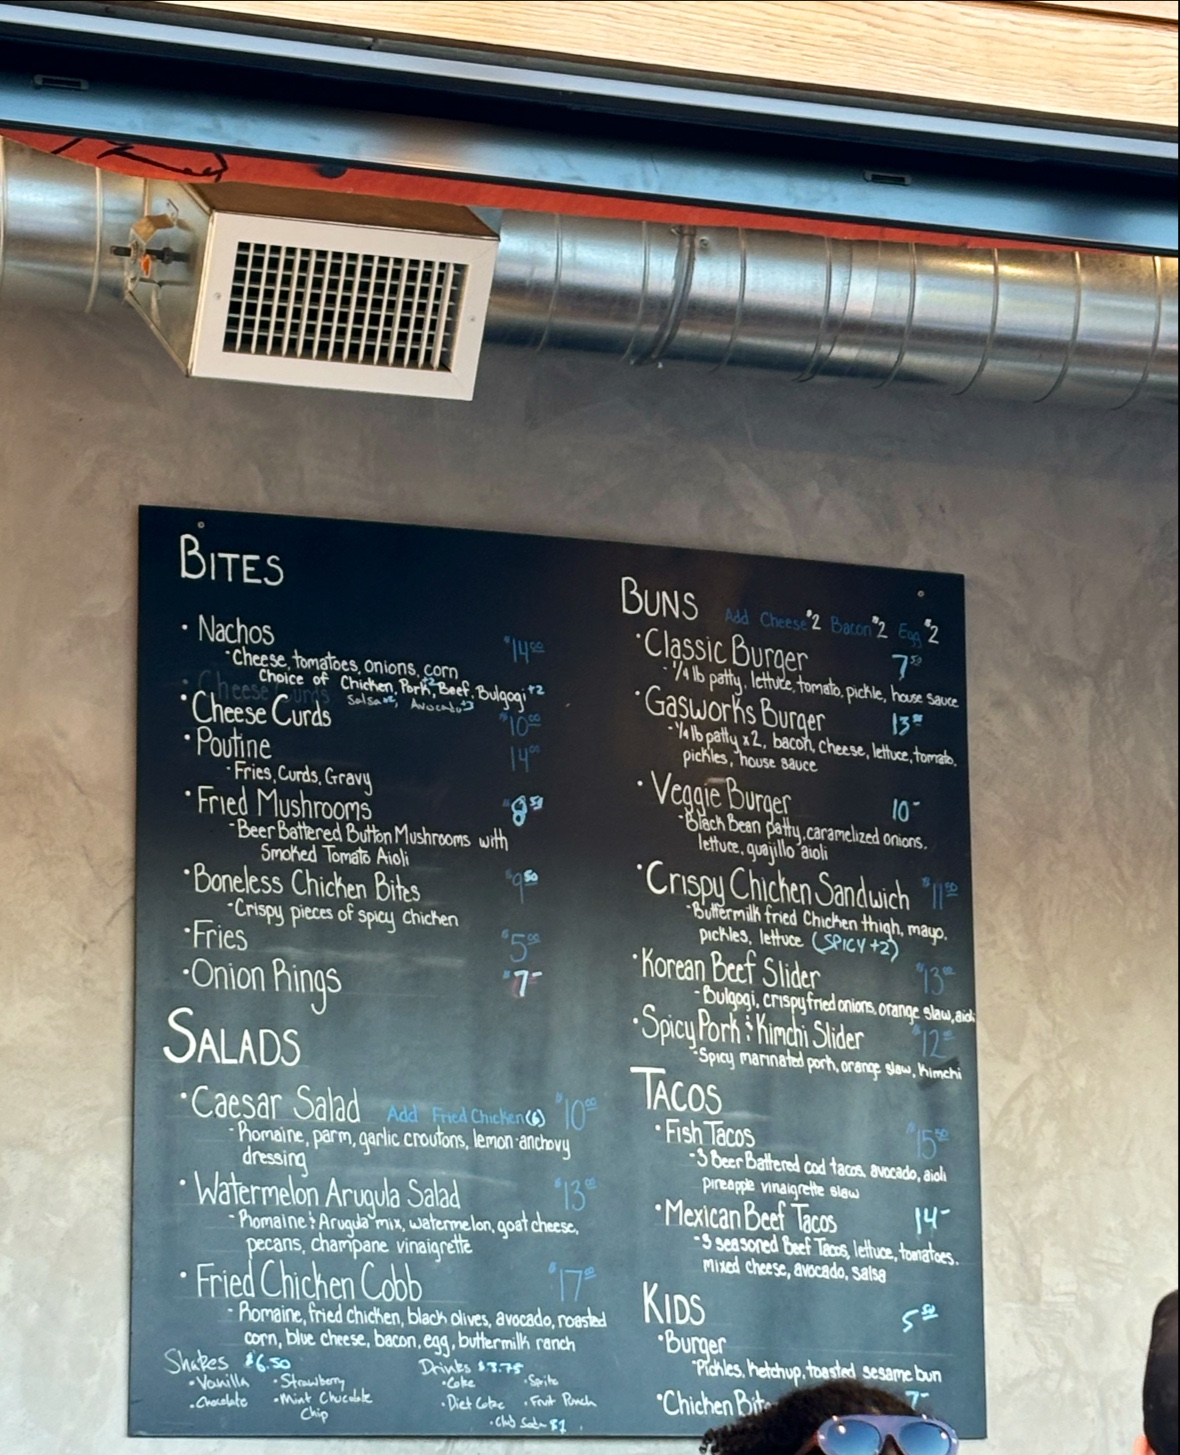 BITES
· Nachos $14.00
· Cheese, tomatoes, onions, corn
Choice of Chicken, Pork+2, Beef, Bulgogi+2
Avocado+3
· Cheese Curds $10.00
· Poutine 14.00
- Fries, Curds, Gravy
· Fried Mushrooms $8.50
- Beer Battered Button Mushrooms with
Smoked Tomato Aioli
· Boneless Chicken Bites $9.50
- Crispy pieces of spicy chicken
· Fries $5.00
· Onion Rings $7-
SALADS
· Caesar Salad Add Fried Chicken (6) $10.00
- Romaine, parm, garlic croutons, lemon-anchovy
dressing
· Watermelon Arugula Salad $13.00
- Romaine & Arugula mix, watermelon, goat cheese,
pecans, champane vinaigrette
· Fried Chicken Cobb $17.00
- Romaine, fried chicken, black olives, avocado, roasted
corn, blue cheese, bacon, egg, buttermilk ranch
Shakes $6.50
· Vanilla · Strawberry
· Chocolate · Mint Chocolate
Chip
Drinks $3.75
· Coke · Sprite
· Diet Coke · Fruit Punch
· Club Soda $1
BUNS Add Cheese $2 Bacon $2 Egg $2
· Classic Burger 7.50
- 1/4 lb patty, lettuce, tomato, pickle, house sauce
· Gasworks Burger 13.50
- 1/4 lb patty x2, bacon, cheese, lettuce, tomato,
pickles, house sauce
· Veggie Burger 10-
- Black Bean patty, caramelized onions,
lettuce, guajillo aioli
· Crispy Chicken Sandwich $11.50
- Buttermilk fried Chicken thigh, mayo,
pickles, lettuce (SPICY +2)
· Korean Beef Slider $13.00
- Bulgogi, crispy fried onions, orange slaw,
· Spicy Pork & Kimchi Slider $12.00
- Spicy marinated pork, orange slaw, kimchi
TACOS
· Fish Tacos $15.50
- 3 Beer Battered cod tacos, avocado, aioli
pineapple vinaigrette slaw
· Mexican Beef Tacos 14-
- 3 seasoned Beef Tacos, lettuce, tomatoes,
mixed cheese, avocado, salsa
KIDS 5.50
· Burger
- Pickles, ketchup, toasted sesame bun
· Chicken 7-